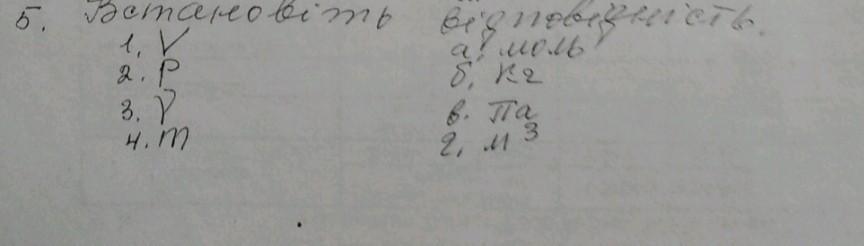 5. Встановіть відповідність.
1. V а. моль
2. P б. кг
3. ν в. Па
4. m г. м³